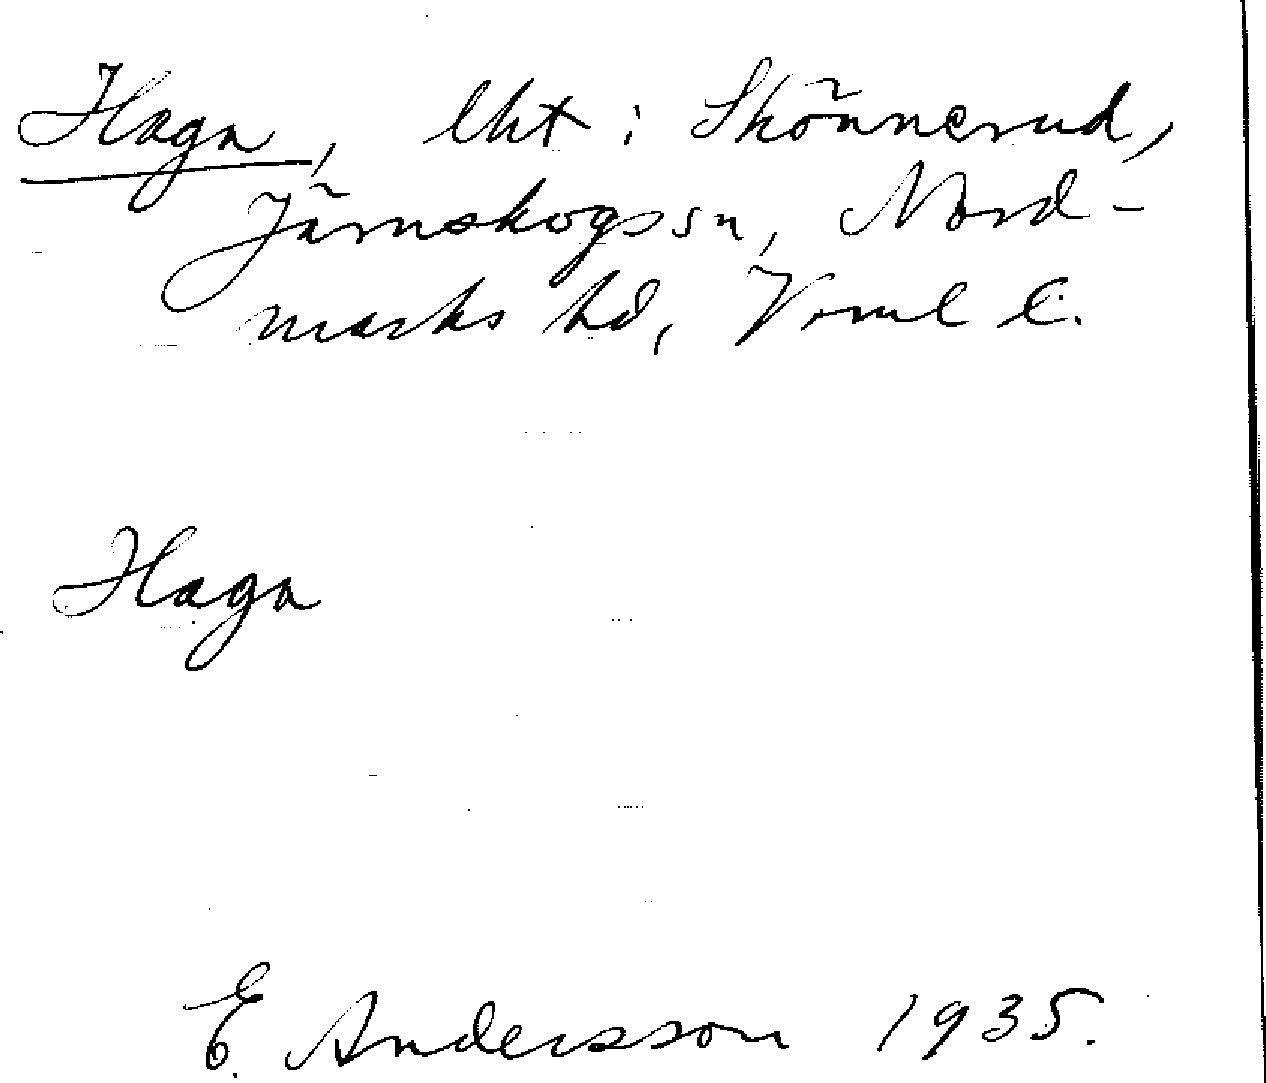 Haga, lht i Skönnerud,
Järnskogs sn, Nord-
marks hd, Vrml l.
Haga
E. Andersson 1935.